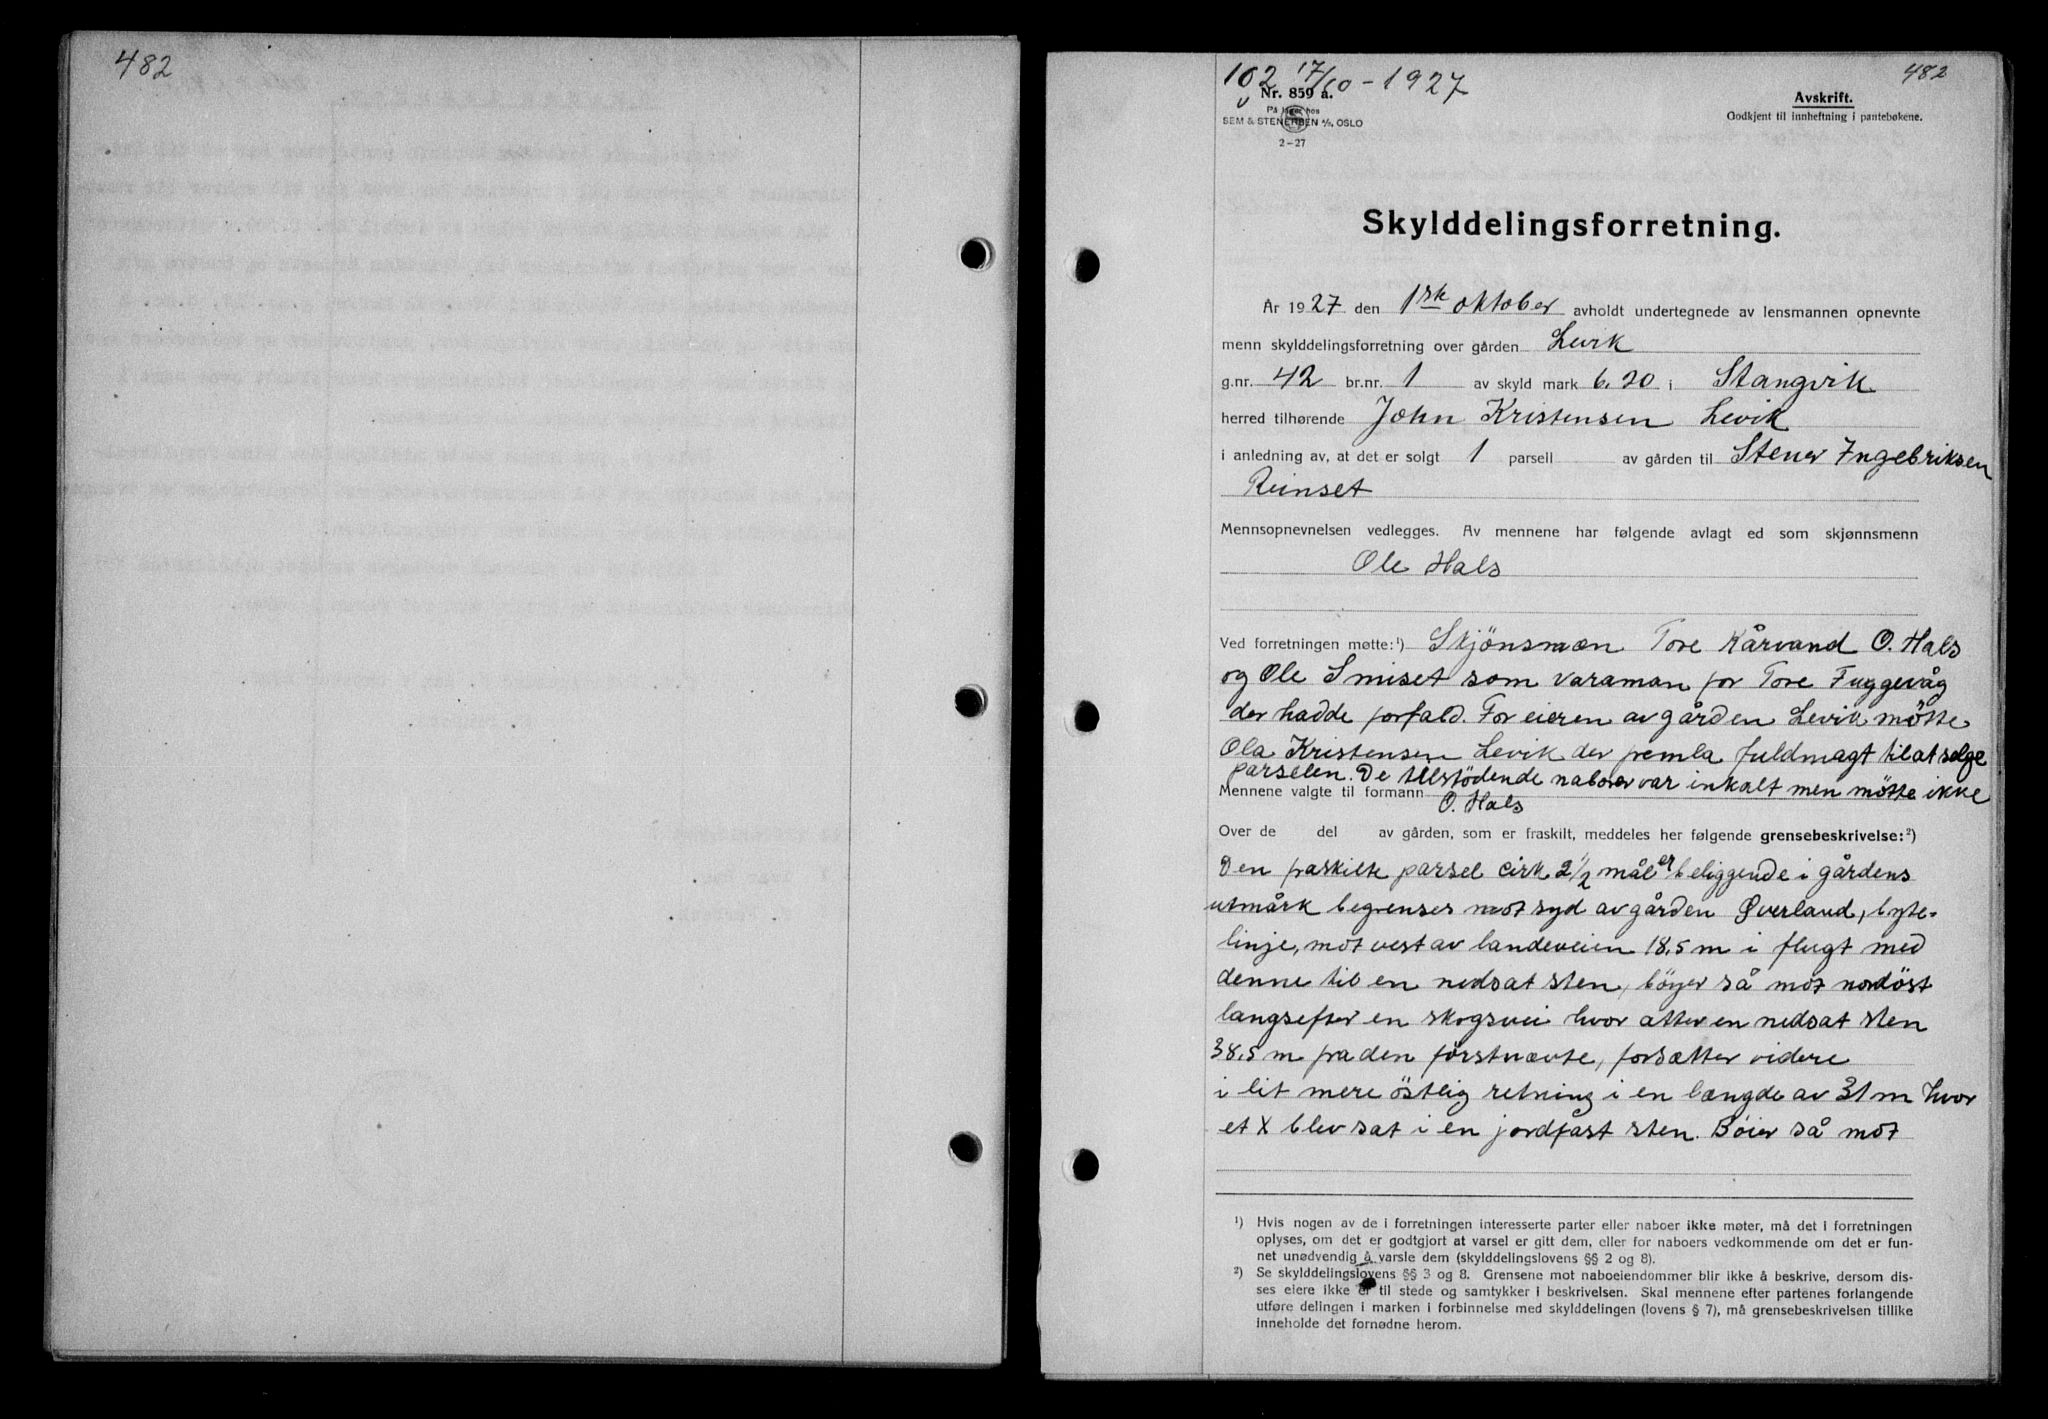 482
102 17/10-1927
482
Nr. 859 a.
På lager hos
SEM & STENERSEN A/S, OSLO
2-27
Avskrift.
Godkjent til innheftning i pantebøkene.
Skylddelingsforretning.
År 1927 den 1ste oktober avholdt undertegnede av lensmannen opnevnte
menn skylddelingsforretning over gården Levik
g.nr. 42 br.nr. 1 av skyld mark 6,20 i Stangvik
herred tilhørende John Kristensen Levik
i anledning av, at det er solgt 1 parsell av gården til Stener Ingebriksen
Reinset
Mennsopnevnelsen vedlegges. Av mennene har følgende avlagt ed som skjønnsmenn
Ole Hals
Ved forretningen møtte:¹) Skjönsmæn Tore Kårvand O. Hals
og Ole Smiset som varaman for Tore Fuggevåg
der hadde forfald. For eieren av gården Levik møtte
Ola Kristensen Levik der fremla fuldmagt til at selge
parselen. De tilstödende naboer var inkalt men møtte ikke
Mennene valgte til formann O. Hals
Over de del av gården, som er fraskilt, meddeles her følgende grensebeskrivelse:²)
Den fraskilte parsel cirk 2 1/2 mål er beliggende i gårdens
utmårk begrenses mot syd av gården Øverland, byte-
linje, mot vest av landeveien 18,5 m i flugt med
denne til en nedsat sten, bøyer så mot nordöst
langsefter en skogsvei hvor atter en nedsat sten
38,5 m fra den förstnævte, forsætter videre
i lit mere östlig retning i en længde av 31 m hvor
et X blev sat i en jordfast sten. Böier så mot
¹) Hvis nogen av de i forretningen interesserte parter eller naboer ikke møter, må det i forretningen
oplyses, om det er godtgjort at varsel er gitt dem, eller for naboers vedkommende om det er fun-
net unødvendig å varsle dem (skylddelingslovens §§ 2 og 8).
²) Se skylddelingslovens §§ 3 og 8. Grensene mot naboeiendommer blir ikke å beskrive, dersom dis-
ses eiere ikke er til stede og samtykker i beskrivelsen. Skal mennene efter partenes forlangende
utføre delingen i marken i forbinnelse med skylddelingen (lovens § 7), må grensebeskrivelsen tillike
inneholde det fornødne herom.